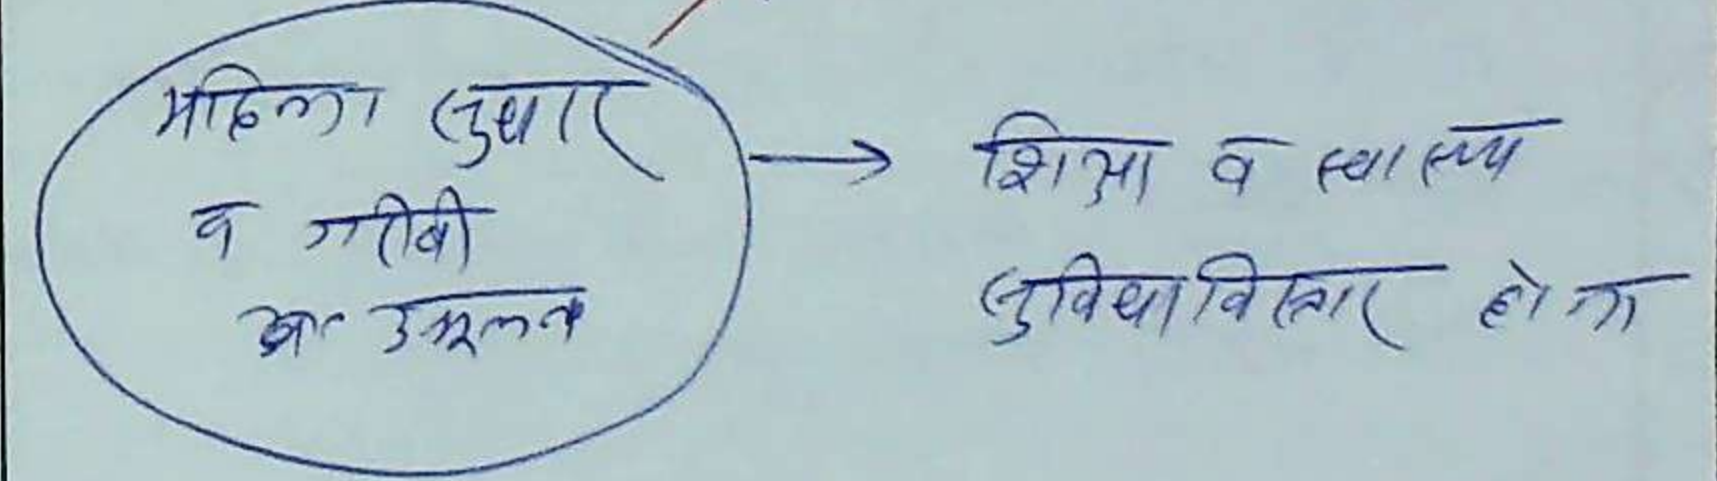 महिला सुधार
व गरीबी
का उन्मूलन
शिक्षा व स्वास्थ्य
सुविधा विस्तार होगा